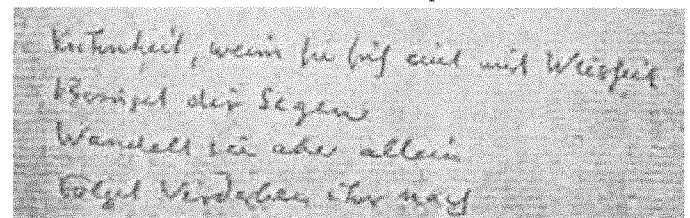 Kühnheit, wenn sie sich eint mit Weisheit
der Segen
Wandelt sie aber allein
Folget Verderben ihr nach